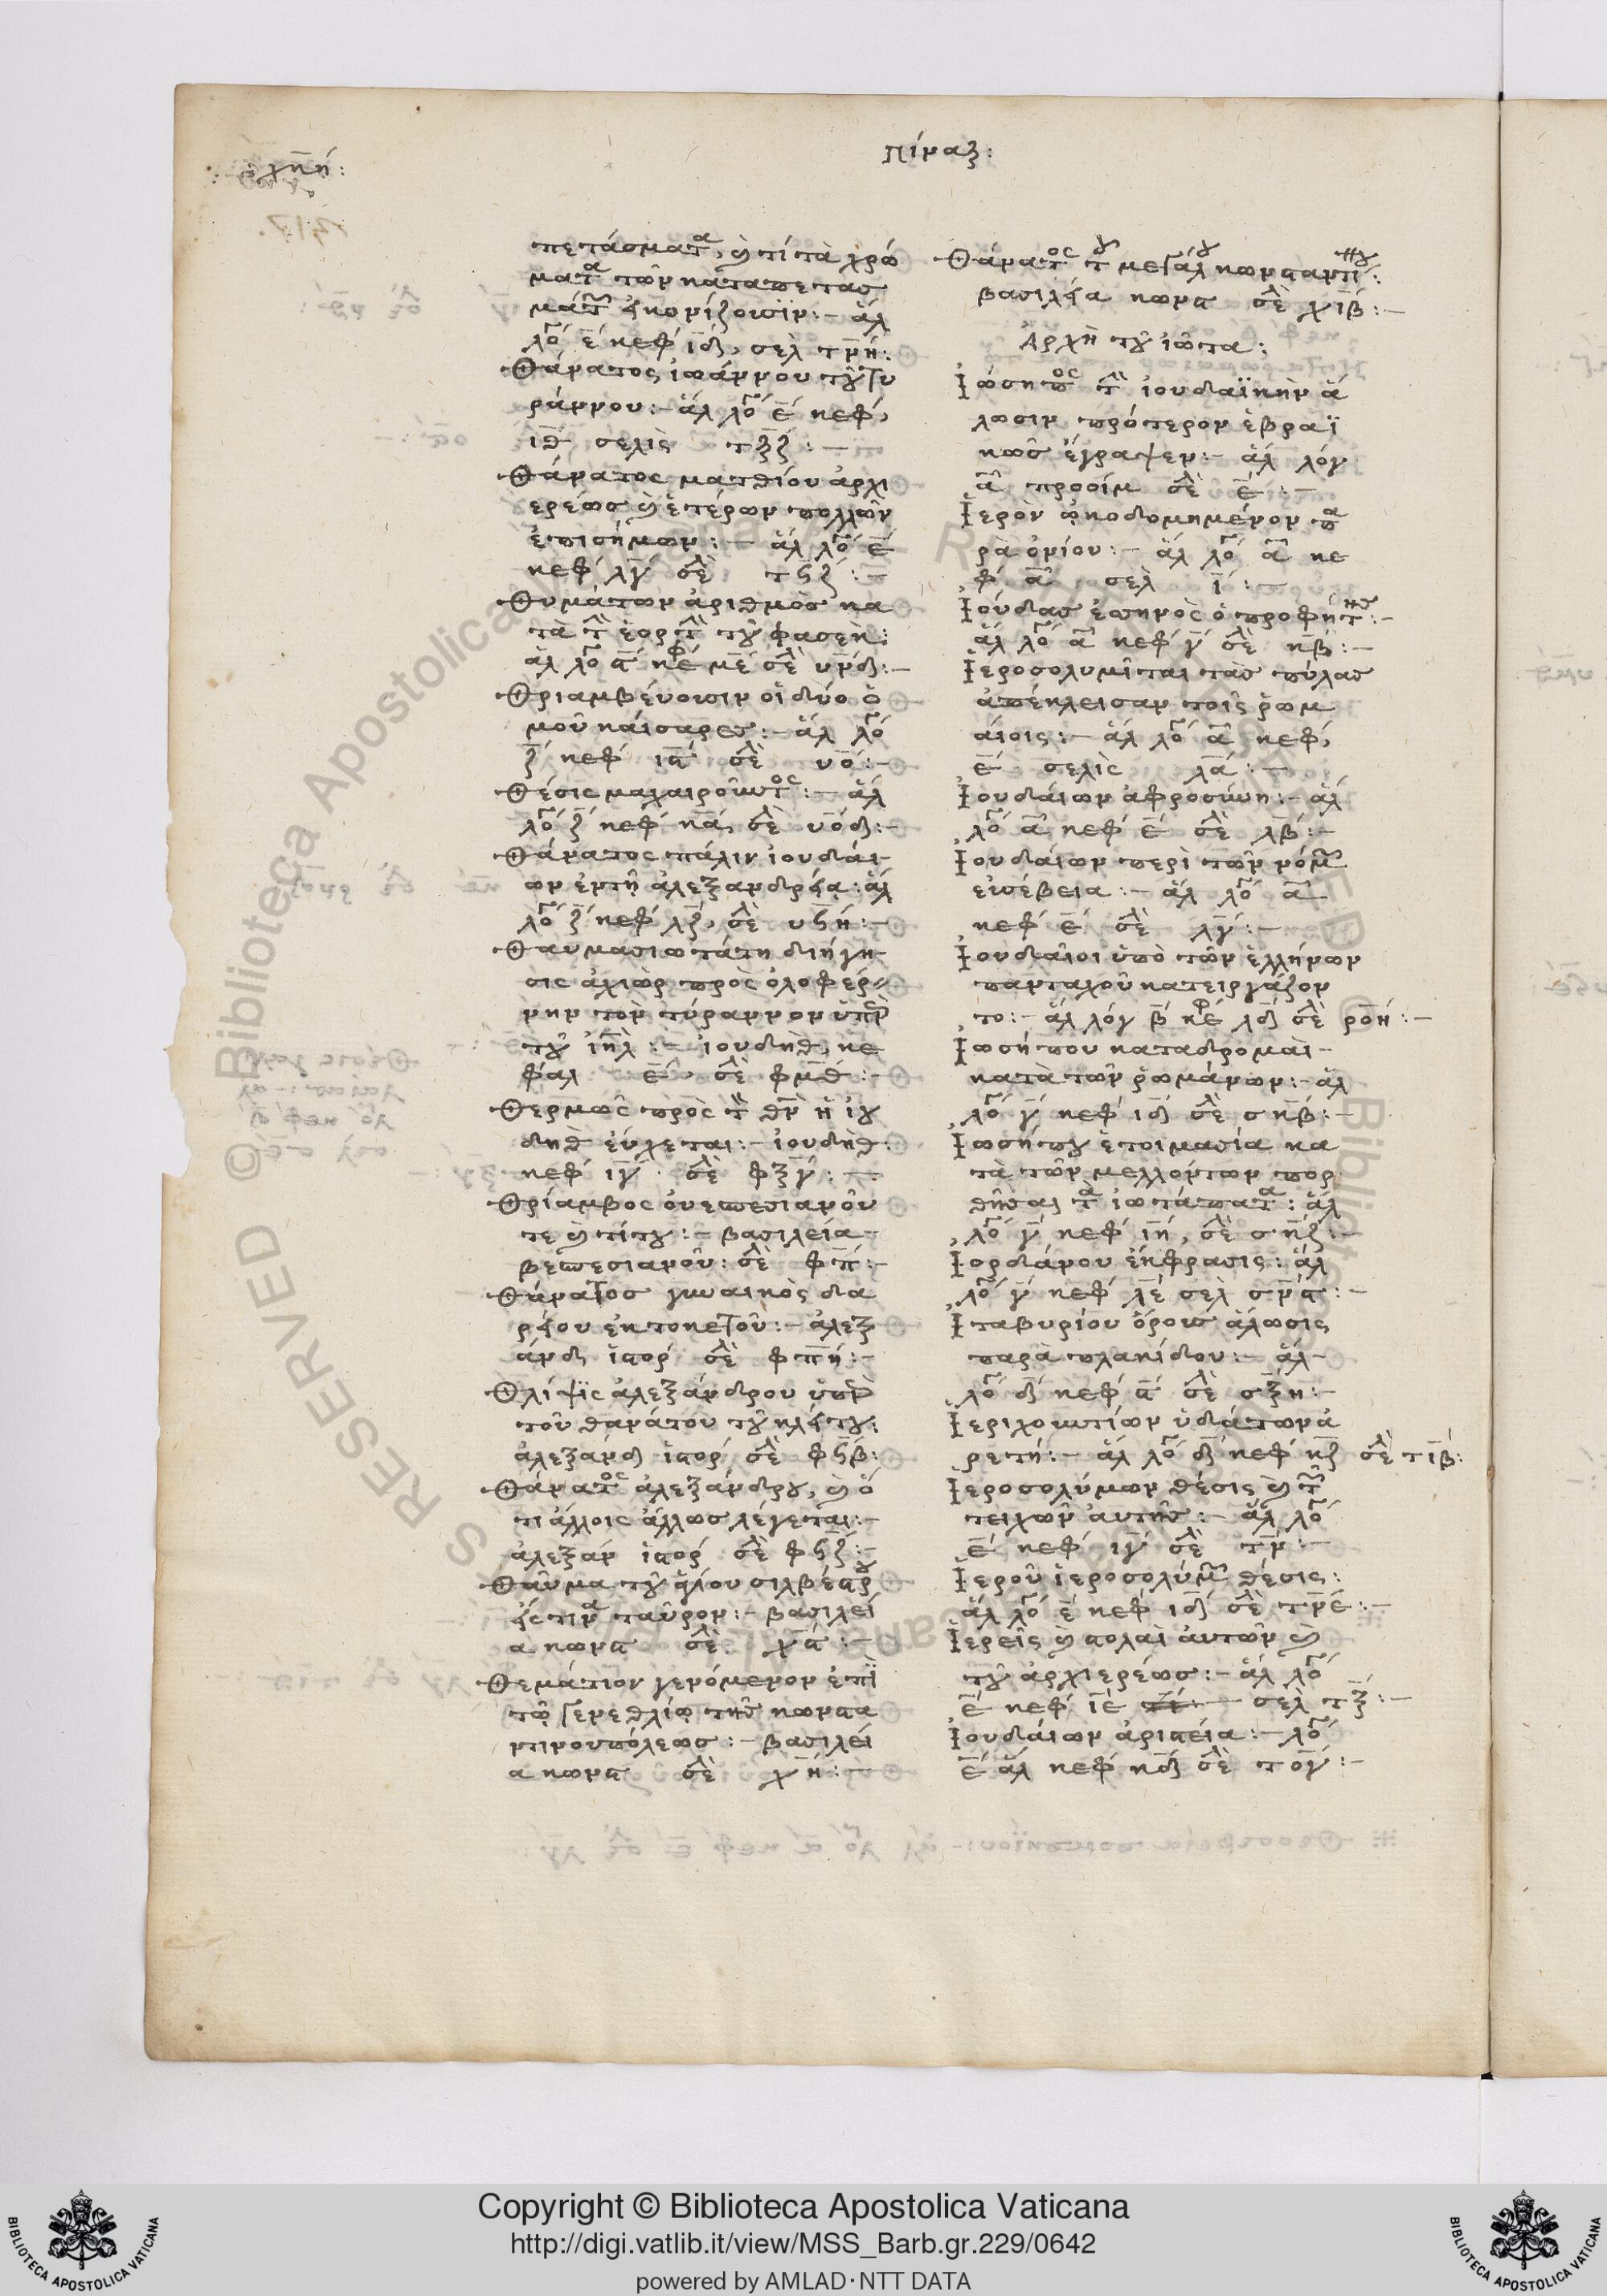 Πίναξ:
χνη:
πετάσματα, καὶ τί τὰ χρώ
ματα τῶν καταπετασ
μάτων εἰκονίζουσιν:– ἁλ
λό ε κεφ ιδ, σελ τνη:
Θάνατος ἰωάννου τοῦ τυ
ράννου:– ἁλ λό ε κεφ,
ιθ σελὶς τξζ:–
Θάνατος ματθίου ἀρχι
ερέως καὶ ἑτέρων πολλῶν
ἐπισήμων:– ἁλ λό ε
κεφ λγ σελ τϟζ:–
Θυμάτων ἀριθμὸς κα
τὰ τὴν ἑορτὴν τοῦ φασεκ:
ἁλ λό ϛ κεφ με σελ υνδ:–
Θριαμβεύουσιν οἱ δύο ὁ
μοῦ καίσαρες:– ἁλ λό
ζ κεφ ιϛ σελ υο:–
Θέσις μαχαιροῦντος:– ἁλ
λό ζ κεφ κα, σελ υοδ:–
Θάνατος πάλιν ἰουδαί
ων ἐν τῇ ἀλεξανδρείᾳ: ἁλ
λό ζ κεφ λζ, σελ υϟη:–
Θαυμασιωτάτη διήγη
σις ἀχιὼρ πρὸς ὀλοφέρ
νην τὸν τύραννον ὑπὲρ
τοῦ ἰηλ:– ἰουδηθ, κε
φαλ ε, σελ φμθ:–
Θερμῶς πρὸς τὸν θν ἡ ἰου
δηθ εὔχεται:– ἰουδηθ:
κεφ ιγ σελ φξγ:–
Θρίαμβος οὐεσπεσιανοῦ
τε καὶ τίτου:– βασιλεία
βεσπεσιανοῦ: σελ φπ:–
Θάνατος γυναικὸς δα
ρείου ἐκ τοκετοῦ:– ἀλεξ
άνδ ἱστορ σελ φπη:–
Θλίψις ἀλεξάνδρου ὑπὲρ
τοῦ θανάτου τοῦ κλείτου:
ἀλεξανδ ἱστορ σελ φϟβ:
Θάνατος ἀλεξάνδρου, καὶ ὅ
τι ἄλλοις ἄλλως λέγεται:–
ἀλεξαν ἱστορ σελ φϟζ:–
Θαῦμα τοῦ ἁγίου σιλβέστρου
εἴς τινα ταῦρον:– βασιλεί
α κωνστ σελ χϛ:–
Θεμάτιον γενόμενον ἐπὶ
τῷ γενεθλίῳ τῆς κωνστα
ντινουπόλεως:– βασιλεί
α κωνστ σελ χη:–
Θάνατος τοῦ μεγάλου κωνσταντίνου:
βασιλεία κωνστ σελ χιβ:–
Ἀρχὴ τοῦ ἰῶτα:
Ἰώσηπος τὴν ἰουδαϊκὴν ἅ
λωσιν πρότερον ἑβραϊ
κῶς ἔγραψεν:– ἁλ λόγ
α προοίμ σελ ε:–
Ἱερὸν ᾠκοδομημένον πα
ρὰ ὀνίου:– ἁλ λό α κε
φ α σελ ι:–
Ἰούδας ἐσηνὸς ὁ προφήτης:–
ἁλ λό α κεφ γ σελ κβ:–
Ἱεροσολυμῖται τὰς πύλας
ἀπέκλεισαν τοῖς ῥωμ
αίοις:– ἁλ λό α κεφ,
ε σελὶς λα:–
Ἰουδαίων ἀφροσύνη:– ἁλ
λό α κεφ ε σελ λβ:–
Ἰουδαίων περὶ τῶν νόμων
εὐσέβεια:– ἁλ λό α
κεφ ε σελ λγ:–
Ἰουδαῖοι ὑπὸ τῶν ἑλλήνων
πανταχοῦ κατειργάζον
το:– ἁλ λόγ β κεφ λδ σελ ροη:–
Ἰωσήπου καταδρομαὶ
κατὰ τῶν ῥωμάνων:– ἁλ
λό γ κεφ ιδ σελ σκβ:–
Ἰωσήπου ἑτοιμασία κα
τὰ τῶν μελλόντων πορ
θῆσαι τὰ ἰωτάπατα: ἁλ
λό γ κεφ ιη, σελ σκζ:–
Ἰορδάνου ἔκφρασις: ἁλ
λό γ κεφ λε σελ σνϛ:–
Ἰταβυρίου ὄρους ἅλωσις
παρὰ πλακίδου:– ἁλ
λό δ κεφ ϛ σελ σξη:–
Ἱεριχουντίων ὑδάτων ἀ
ρετή:– ἁλ λό δ κεφ κζ σελ τιβ:
Ἱεροσολύμων θέσις καὶ τῶν
τειχῶν αὐτῆς:– ἁλ λό
ε κεφ ιγ σελ τν:–
Ἱεροῦ ἱεροσολύμων θέσις:
ἁλ λό ε κεφ ιδ σελ τνε:–
Ἱερεῖς καὶ στολαὶ αὐτῶν καὶ
τοῦ ἀρχιερέως:– ἁλ λό
ε κεφ ιε σελ τξ:–
Ἰουδαίων ἀριστεία:– λό
ε ἁλ κεφ κδ σελ τογ:–
Copyright © Biblioteca Apostolica Vaticana
http://digi.vatlib.it/view/MSS_Barb.gr.229/0642
powered by AMLAD·NTT DATA
BIBLIOTECA APOSTOLICA VATICANA
BIBLIOTECA APOSTOLICA VATICANA